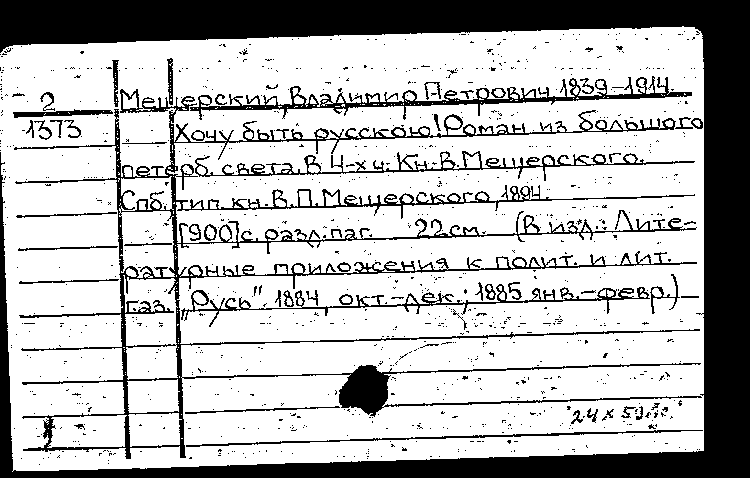 2 Мещерский, Владимир Петрович, 1839-1914.
1373 Хочу быть русскою! Роман из большого
петерб. света. В 4-х ч. Кн. В. Мещерского.
Спб., тип. кн. В.П. Мещерского, 1894.
[900] с. разд. паг. 22 см. (В изд.: Лите-
ратурные приложения к полит. и лит.
газ. „Русь". 1884, окт.-дек.; 1885 янв.-февр.)